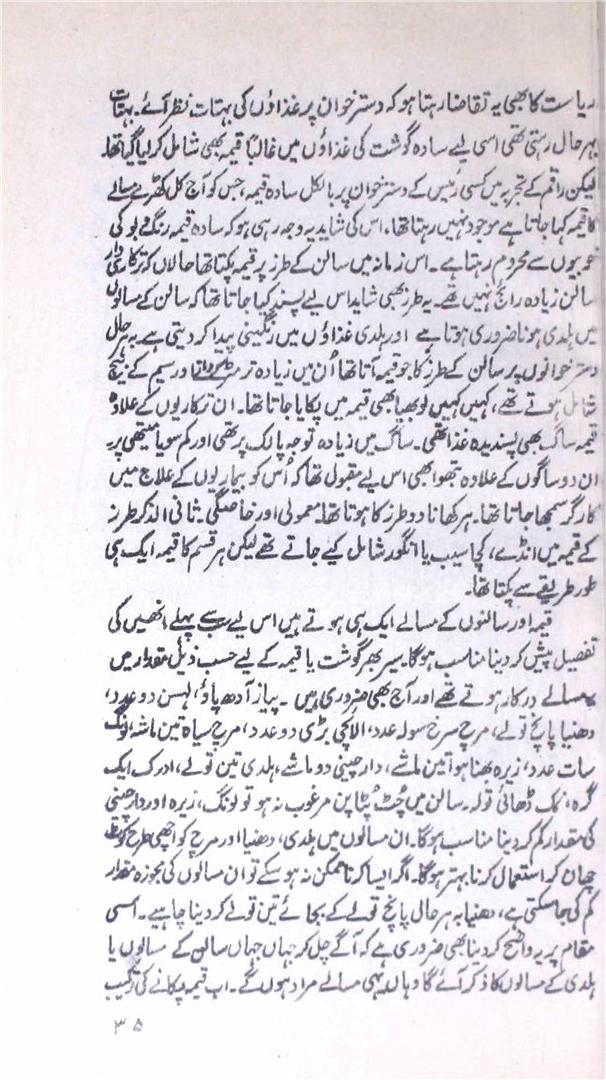 ریاست کا بھی یہ تقاضا رہتا ہو کہ دسترخوان پر غذاؤں کی بہتات نظر آئے۔ بہتات
بہرحال رہتی تھی اسی لیے سادہ گوشت کی غذاؤں میں غالباً قیمہ بھی شامل کر لیا گیا تھا۔
لیکن راقم کے تجربہ میں کسی رئیس کے دسترخوان پر بالکل سادہ قیمہ، جس کو آج کل کھڑے مسالے
کا قیمہ کہا جاتا ہے موجود نہیں رہتا تھا۔ اس کی شاید یہ وجہ رہی ہو کہ سادہ قیمہ رنگ و بو کی
خوبیوں سے محروم رہتا ہے۔ اس زمانہ میں سالن کے طرز پر قیمہ پکتا تھا حالاں کہ ترکاری دار
سالن زیادہ رائج نہیں تھے۔ یہ طرز بھی شاید اس لیے پسند کیا جاتا تھا کہ سالن کے مسالوں
میں ہلدی ہونا ضروری ہوتا ہے اور ہلدی غذاؤں میں رنگینی پیدا کر دیتی ہے۔ بہرحال
دسترخوانوں پر سالن کے طرز کا جو قیمہ آتا تھا اُن میں زیادہ تر مٹر اور سیم کے بیج
شامل ہوتے تھے، کہیں کہیں لوبھیا بھی قیمہ میں پکایا جاتا تھا۔ ان ترکاریوں کے علاوہ
قیمہ ساگ بھی پسندیدہ غذا تھی۔ ساگ میں زیادہ توجہ پالک پر تھی اور کم سویا میتھی پر۔
ان دو ساگوں کے علاوہ بتھوا بھی اس لیے مقبول تھا کہ اُس کو بیماریوں کے علاج میں
کارگر سمجھا جاتا تھا۔ ہر کھانا دو طرز کا ہوتا تھا۔ معمولی اور خاصگی۔ ثانی الذکر طرز
کے قیمہ میں انڈے، کچا سیب یا انگور شامل کیے جاتے تھے لیکن ہر قسم کا قیمہ ایک ہی
طور طریقے سے پکتا تھا۔
قیمہ اور سالنوں کے مسالے ایک ہی ہوتے ہیں اس لیے سب سے پہلے انھیں کی
تفصیل پیش کر دینا مناسب ہوگا۔ سیر بھر گوشت یا قیمہ کے لیے حسب ذیل مقدار میں
مسالے درکار ہوتے تھے اور آج بھی ضروری ہیں۔ پیاز آدھ پاؤ، لہسن دو عدد،
دھنیا پانچ تولے، مرچ سرخ سولہ عدد، الائچی بڑی دو عدد، مرچ سیاہ تین ماشہ، لونگ
سات عدد، زیرہ بھنا ہوا تین ماشے، دارچینی دو ماشے، ہلدی تین تولے، ادرک ایک
گرہ، نمک ڈھائی تولہ۔ سالن میں چٹ پٹا پن مرغوب نہ ہو تو لونگ، زیرہ اور دارچینی
کی مقدار کم کر دینا مناسب ہوگا۔ ان مسالوں میں ہلدی، دھنیا اور مرچ کو اچھی طرح کوٹ
چھان کر استعمال کرنا بہتر ہوگا۔ اگر ایسا کرنا ممکن نہ ہو سکے تو ان مسالوں کی مجوزہ مقدار
کم کی جا سکتی ہے، دھنیا بہ ہر حال پانچ تولے کے بجائے تین تولے کر دینا چاہیے۔ اسی
مقام پر یہ واضح کر دینا بھی ضروری ہے کہ آگے چل کر جہاں جہاں سالن کے مسالوں یا
ہلدی کے مسالوں کا ذکر آئے گا وہاں یہی مسالے مراد ہوں گے۔ اب قیمہ پکانے کی ترکیب
۳۵